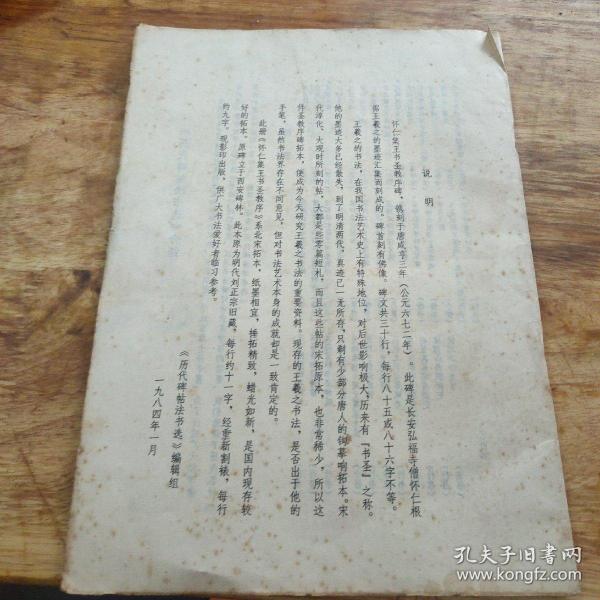 说明
怀仁集王书圣教序碑，镌刻于唐咸亨三年（公元六七二年）。此碑是长安弘福寺僧怀仁根
据王羲之的墨迹汇集而刻成的。碑首刻有佛像。碑文共三十行，每行八十五或八十六字不等。
王羲之的书法，在我国书法艺术史上有特殊地位，对后世影响极大，历来有『书圣』之称。
他的墨迹大多已经散失，到了明清两代，真迹已一无所存，只剩有少部分唐人的钩摹响拓本。宋
代淳化、大观时所刻的帖，大都是些零篇短札，而且这些帖的宋拓原本，也非常稀少，所以这
件圣教序碑拓本，便成为今天研究王羲之书法的重要资料。现存的王羲之书法，是否出于他的
手笔，虽然书法界存在不同意见，但对书法艺术本身的成就却是一致肯定的。
此册《怀仁集王书圣教序》系北宋拓本，纸墨相宜，捶拓精致，蜡光如新，是国内现存较
好的拓本。原碑立于西安碑林。此本原为明代刘正宗旧藏，每行约十一字，经重新割裱，每行
约九字。现影印出版，供广大书法爱好者临习参考。
《历代碑帖法书选》编辑组
一九八四年一月
孔夫子旧书网
www.kongfz.com